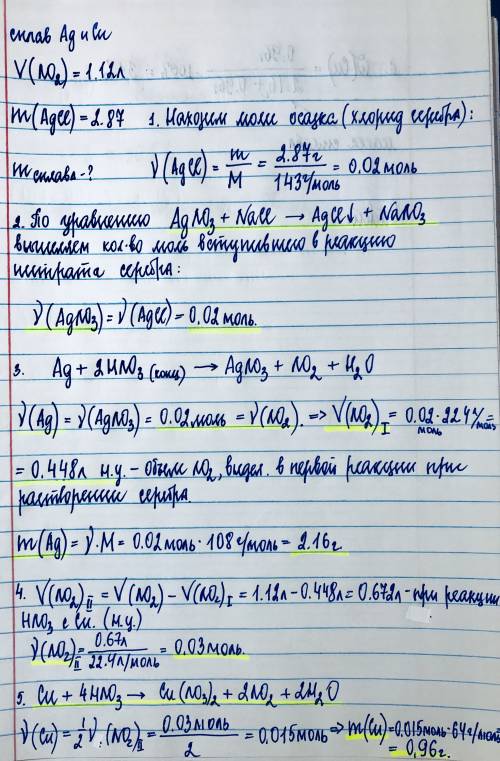 сплав Ag и Cu
V(NO₂) = 1.12л
m(AgCl) = 2.87 1. Находим моли осадка (хлорид серебра):
m сплава - ? ν(AgCl) = m/M = 2.87г/143г/моль = 0.02 моль
2. По уравнению AgNO₃ + NaCl → AgCl↓ + NaNO₃
вычисляем кол-во моль вступившего в реакцию
нитрата серебра:
ν(AgNO₃) = ν(AgCl) = 0.02 моль.
3. Ag + 2HNO₃ (конц) → AgNO₃ + NO₂ + H₂O
ν(Ag) = ν(AgNO₃) = 0.02 моль = ν(NO₂). => V(NO₂) I = 0.02 моль · 22.4 л/моль =
= 0.448л н.у. - объем NO₂, выдел. в первой реакции при
растворении серебра.
m(Ag) = ν·M = 0.02 моль · 108 г/моль = 2.16г
4. V(NO₂) II = V(NO₂) - V(NO₂) I = 1.12л - 0.448л = 0.672л - при реакции
HNO₃ с Cu. (н.у.)
ν(NO₂) II = 0.67л/22.4л/моль = 0.03 моль.
5. Cu + 4HNO₃ → Cu(NO₃)₂ + 2NO₂ + 2H₂O
ν(Cu) = 1/2 ν(NO₂) II = 0.03 моль/2 = 0.015 моль => m(Cu) = 0.015 моль · 64 г/моль
= 0,96г.